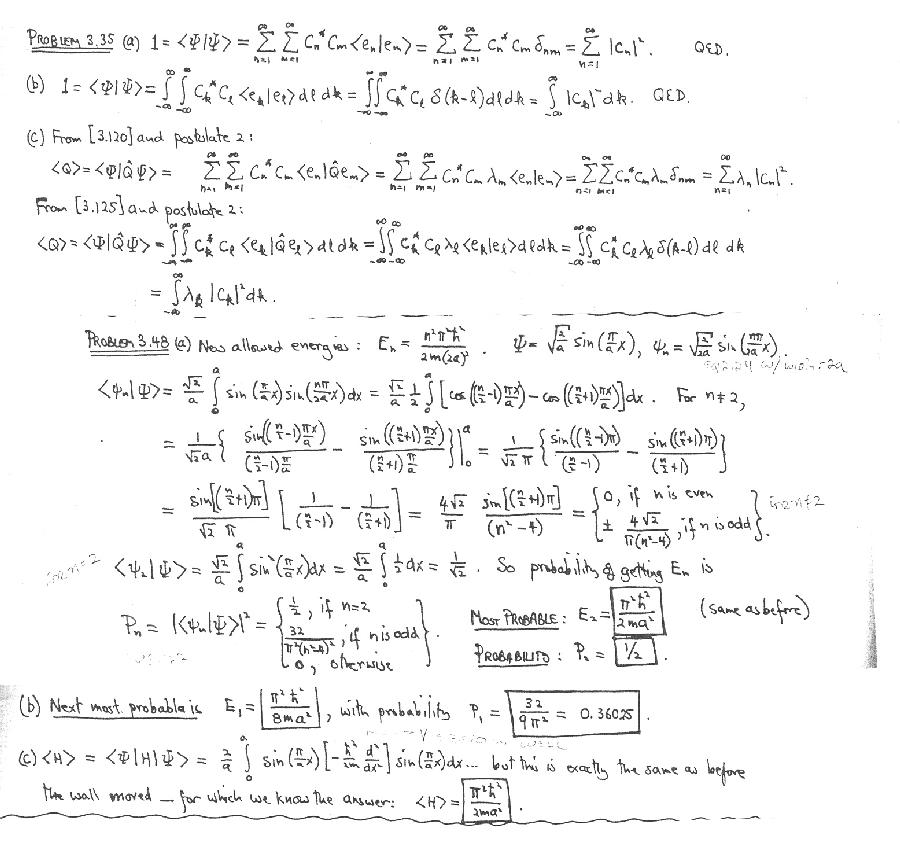 PROBLEM 3.35 (a) 1 = <Ψ|Ψ> = Σ_{n=1}^∞ Σ_{m=1}^∞ Cn* Cm <en|em> = Σ_{n=1}^∞ Σ_{m=1}^∞ Cn* Cm δnm = Σ_{n=1}^∞ |Cn|². QED.
(b) 1 = <Ψ|Ψ> = ∫_{-∞}^∞ ∫_{-∞}^∞ Ck* Cl <ek|el> dl dk = ∫∫_{-∞}^∞ Ck* Cl δ(k-l) dl dk = ∫_{-∞}^∞ |Ck|² dk. QED.
(c) From [3.120] and postulate 2:
<Q> = <Ψ|Q̂Ψ> = Σ_{n=1}^∞ Σ_{m=1}^∞ Cn* Cm <en|Q̂em> = Σ_{n=1}^∞ Σ_{m=1}^∞ Cn* Cm λm <en|em> = Σ_{n=1} Σ_{m=1} Cn* Cm λm δnm = Σ_{n=1}^∞ λn |Cn|².
From [3.125] and postulate 2:
<Q> = <Ψ|Q̂Ψ> = ∫∫_{-∞}^∞ Ck* Cl <ek|Q̂el> dl dk = ∫∫_{-∞}^∞ Ck* Cl λl <ek|el> dl dk = ∫∫_{-∞}^∞ Ck* Cl λl δ(k-l) dl dk
= ∫_{-∞}^∞ λk |Ck|² dk.
PROBLEM 3.48 (a) New allowed energies: En = n²π²ħ²/2m(2a)². Ψ = √(2/a) sin(π/a x), ψn = √(2/2a) sin(nπ/2a x).
<ψn|Ψ> = √2/a ∫_0^a sin(π/a x) sin(nπ/2a x) dx = √2/a 1/2 ∫_0^a [cos((n/2-1)πx/a) - cos((n/2+1)πx/a)] dx. For n≠2,
= 1/√2a { sin((n/2-1)πx/a)/(n/2-1)π/a - sin((n/2+1)πx/a)/(n/2+1)π/a }|_0^a = 1/√2π { sin((n/2-1)π)/(n/2-1) - sin((n/2+1)π)/(n/2+1) }
= sin[(n/2+1)π]/√2π [ 1/(n/2-1) - 1/(n/2+1) ] = 4√2/π sin[(n/2+1)π]/(n²-4) = { 0, if n is even ± 4√2/π(n²-4), if n is odd }.
<ψ2|Ψ> = √2/a ∫_0^a sin²(π/a x) dx = √2/a ∫_0^a 1/2 dx = 1/√2. So probability of getting En is
Pn = |<ψn|Ψ>|² = { 1/2, if n=2 32/π²(n²-4)², if n is odd 0, otherwise }. MOST PROBABLE: E2 = π²ħ²/2ma² (same as before)
PROBABILITY: P2 = 1/2.
(b) Next most probable is E1 = π²ħ²/8ma², with probability P1 = 32/9π² = 0.36025.
(c) <H> = <Ψ|H|Ψ> = 2/a ∫_0^a sin(π/a x) [-ħ²/2m d²/dx²] sin(π/a x) dx... but this is exactly the same as before
the wall moved — for which we know the answer: <H> = π²ħ²/2ma².